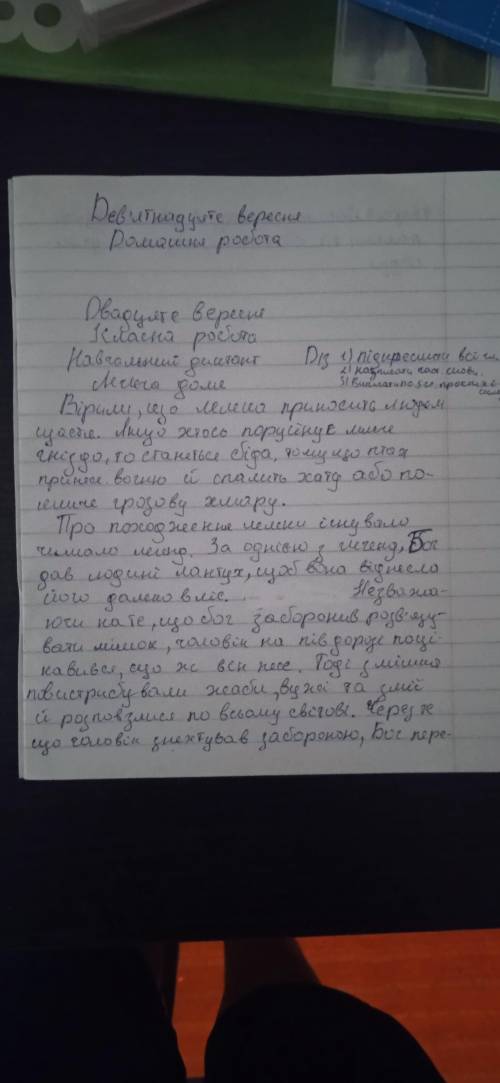 Дев'ятнадцяте вересня
Домашня робота
Двадцяте вересня
Класна робота
Навчальний диктант
Лелега доля
Д/З 1) підкреслити всі
2) надписати
3) Виписати по
Вірили, що лелека приносить людям
щастя. Якщо хтось порушінує лелече
гніздо, то станеться біда, тому що птах
принесе вогню й спалить хату або по-
кличе грозову хмару.
Про походження лелеки існувало
чимало легенд. За однією з легенд, Бог
дав людині лантух, щоб вона віднесла
його далеко в ліс. Незважа-
ючи на те, що бог заборонив розв'язу-
вати мішок, чоловік на пів дорозі поці-
кавився, що ж він несе. Тоді з мішка
повистрибували жаби, вужі та змії
й розповзлися по всьому світові. Через те
що чоловік знехтував забороною, Бог пере-